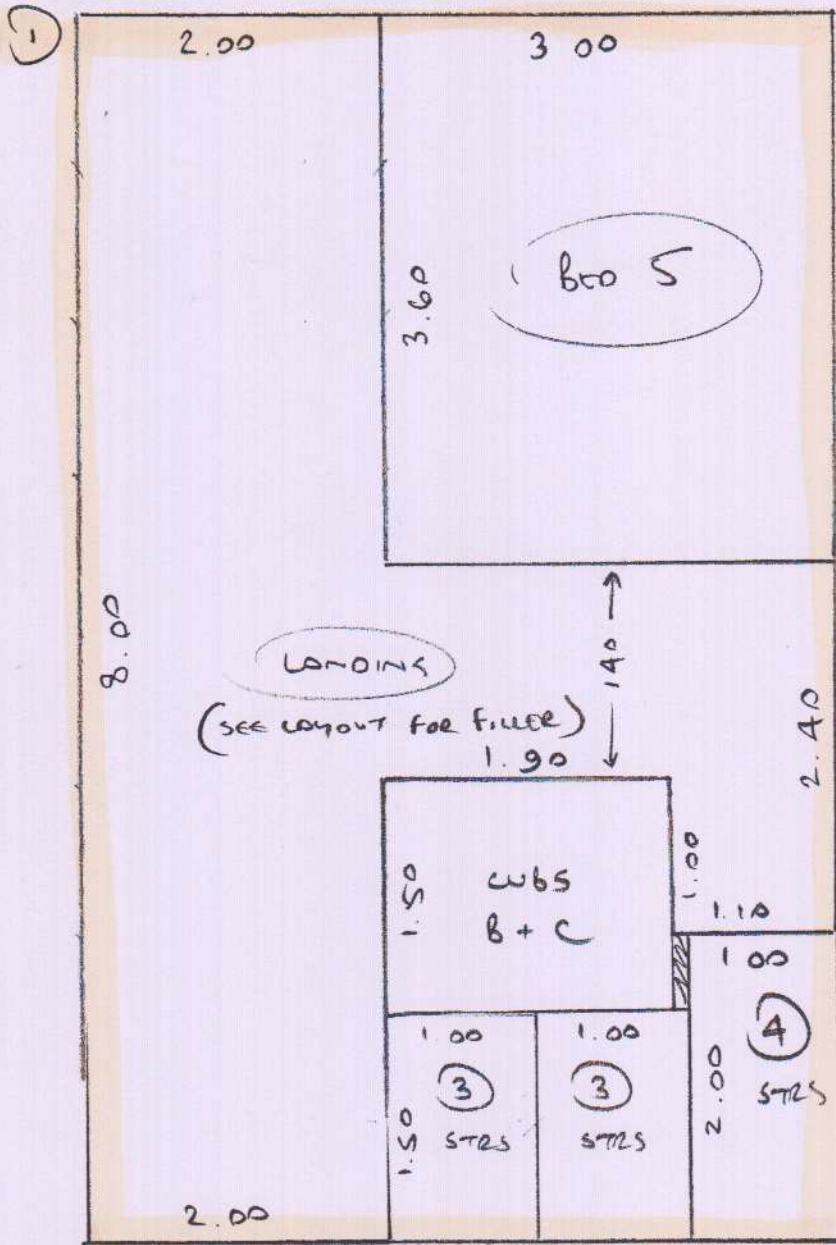 1
2.00 3 00
3.60
BED 5
8.00
LANDING
140
(SEE LAYOUT FOR FILLER)
1.90
2.40
1.50
CUBS
B + C
1.00
1.10
1 00
4
STRS
2.00
1.00 1.00
3 3
STRS STRS
1.50
2.00